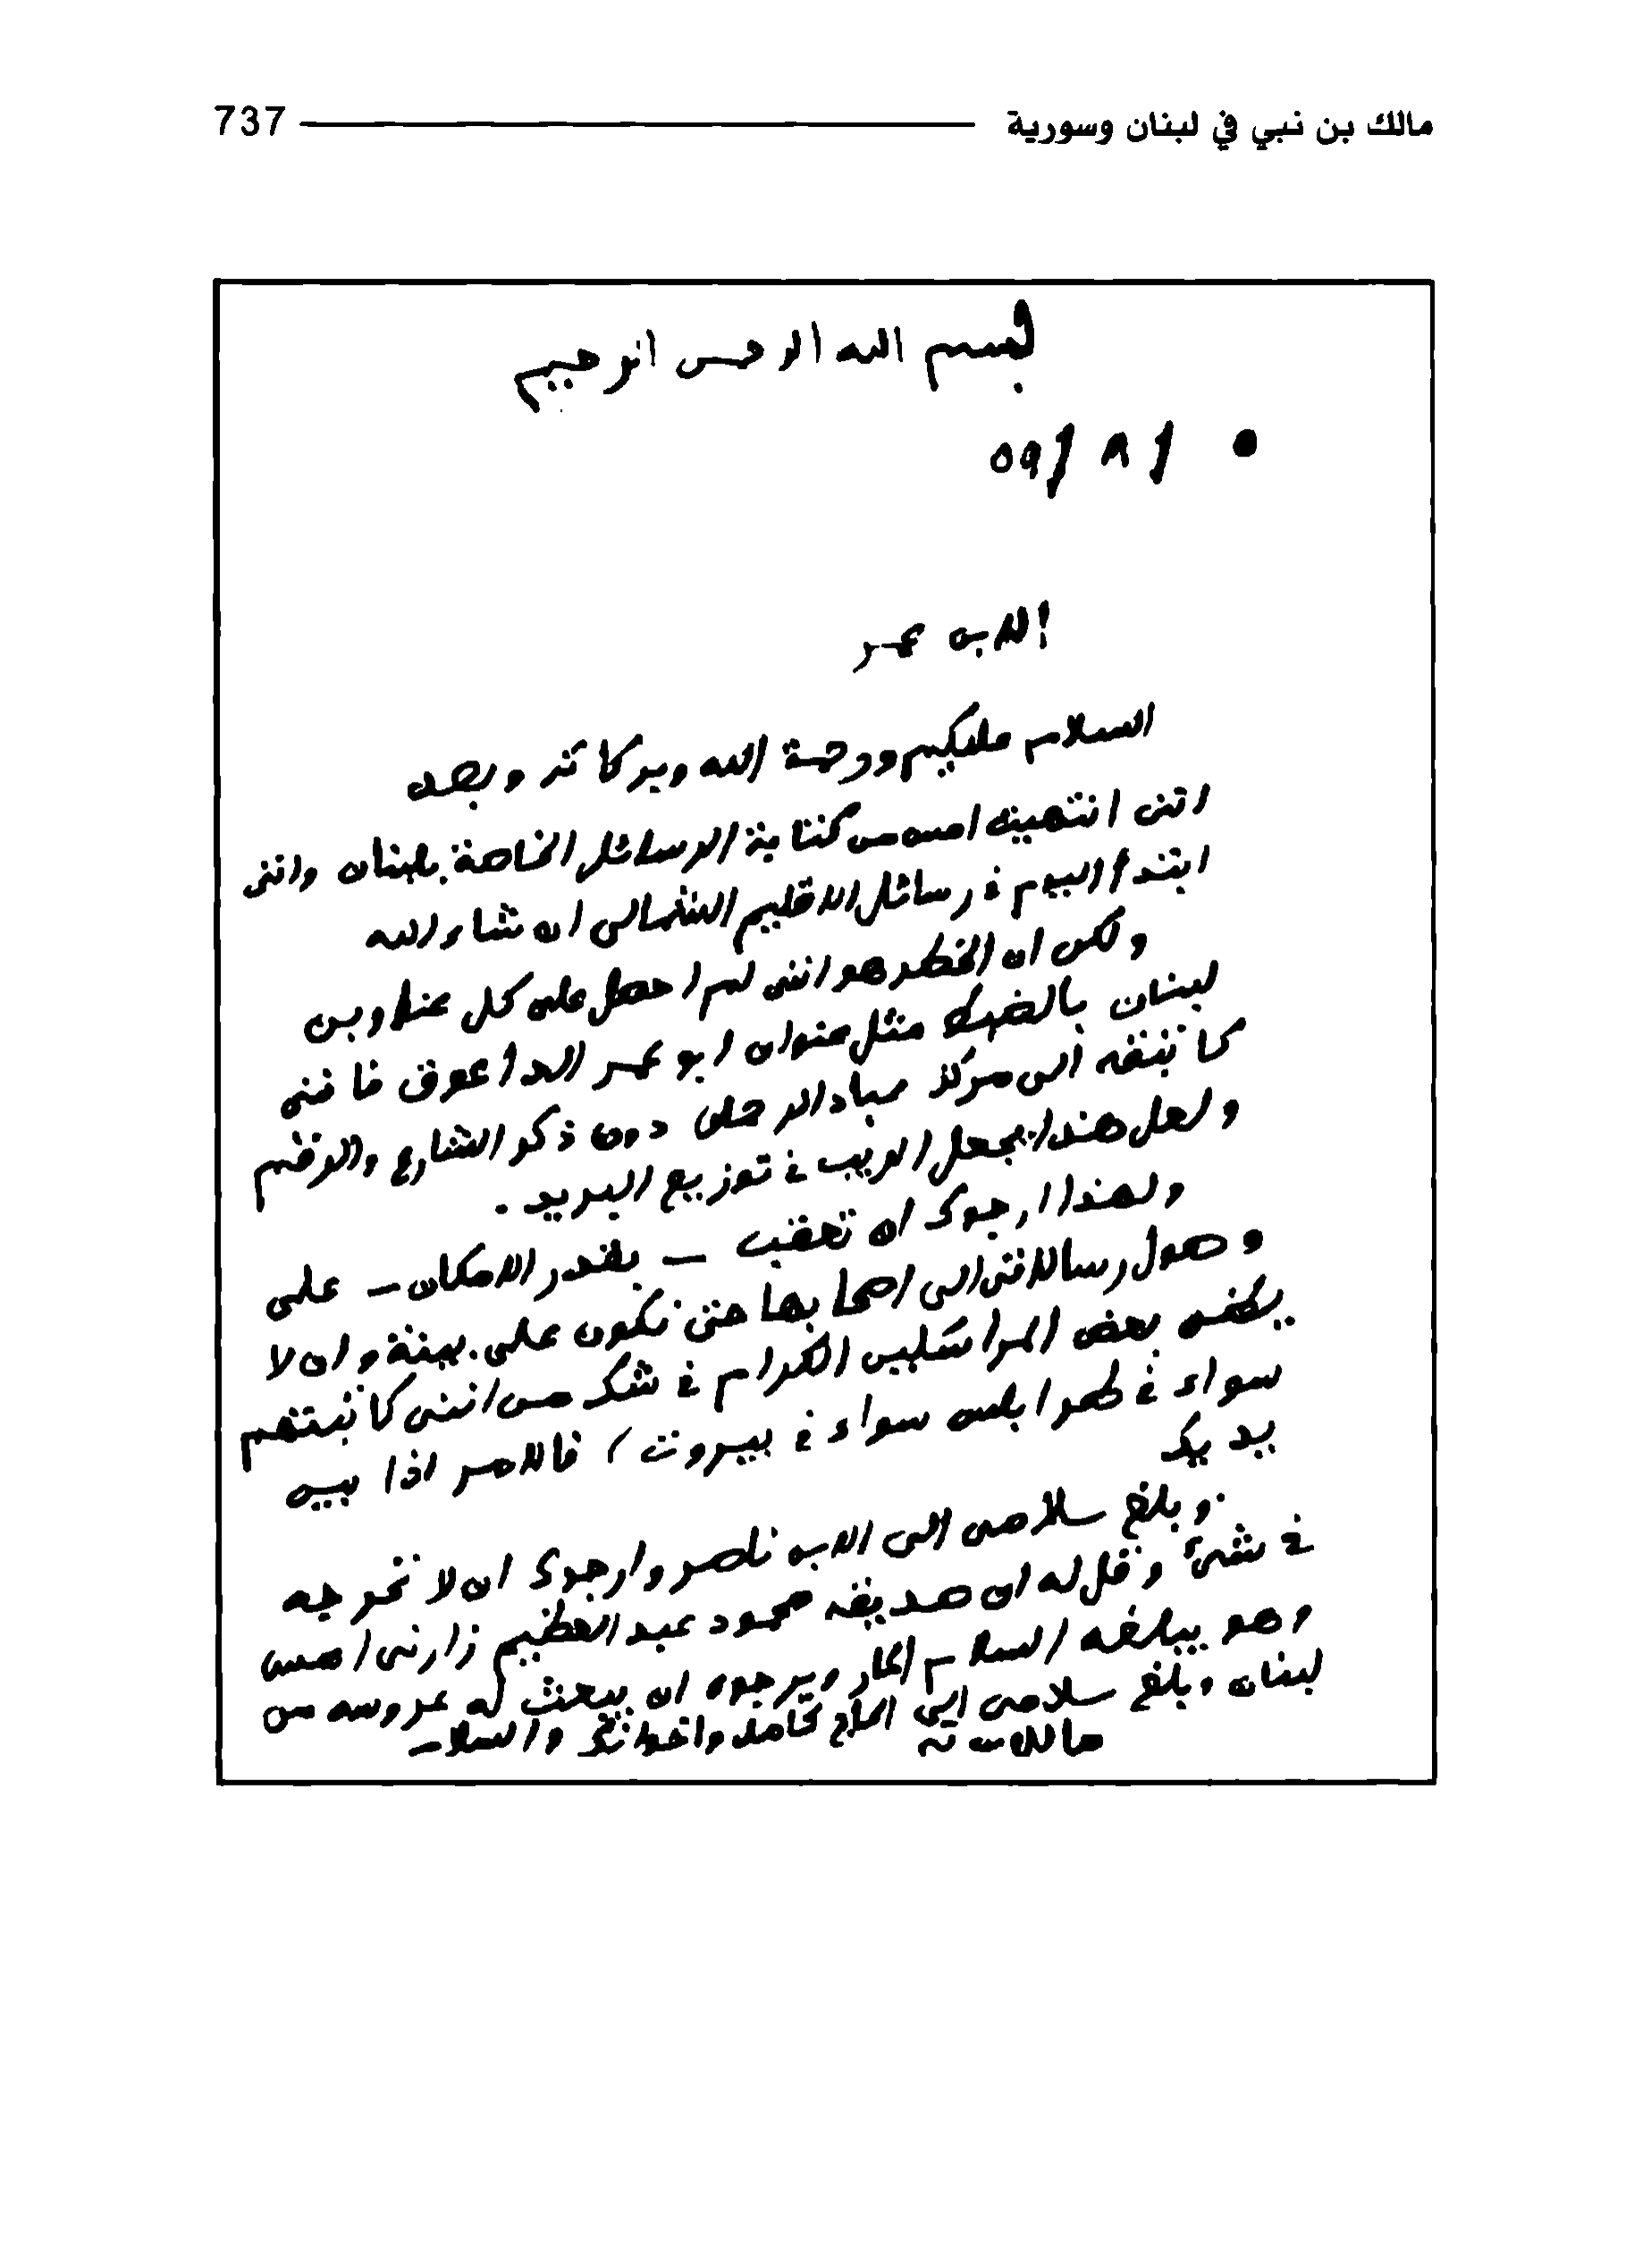 مالك بن نبي في لبنان وسورية 737
بسم الله الرحمن الرحيم
٥٩/٨/
الابن عمر
السلام عليكم ورحمة الله وبركاته وبعد
انني انتهيت امس من كتابة الرسائل الخاصة بلبنان وانني
ابتدأ اليوم في رسائل الاقليم الشمالي ان شاء الله
ولكن ان الخطر هو انني لم احصل على كل عناوين
لبنان بالضبط مثل عنوان ابو عمر الداعوق فانني
كاتبته الى مركز عباد الرحمن دون ذكر الشارع والرقم
ولعل هذا يجعل الريب في توزيع البريد .
ولهذا ارجوك ان تعقب - بقدر الامكان - على
وصول رسالاتي الى اصحابها حتى نكون على بينة وان لا
يكن بعض المراسلين الكرام في شك من انني كاتبتهم
سواء في طرابلس سواء في بيروت / فالامر اذا بين
يديك
وبلغ سلامي الى الابن ناصر وارجوك ان لا تحرجه
في شيء وقل له ان صديقه محمود عبد العظيم زارني امس
وهو يبلغه السلام الحار ويرجوه ان يبعث له عروسه من
لبنان وبلغ سلامي الى الحاج كامل واخوانك والسلام
مالك